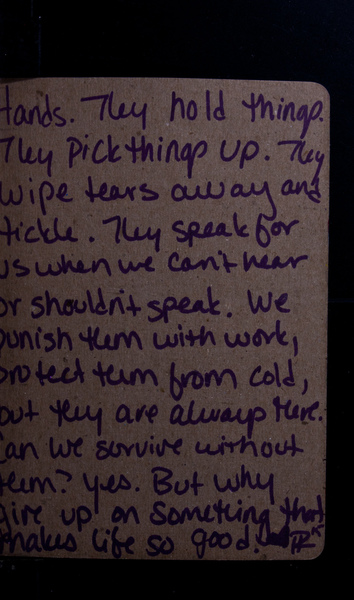 Hands. They hold things.
They pick things up. They
wipe tears away and
tickle. They speak for
us when we can't hear
or shouldn't speak. We
punish them with work,
protect them from cold,
but they are always there.
Can we survive without
them? Yes. But why
give up on something that
makes life so good.